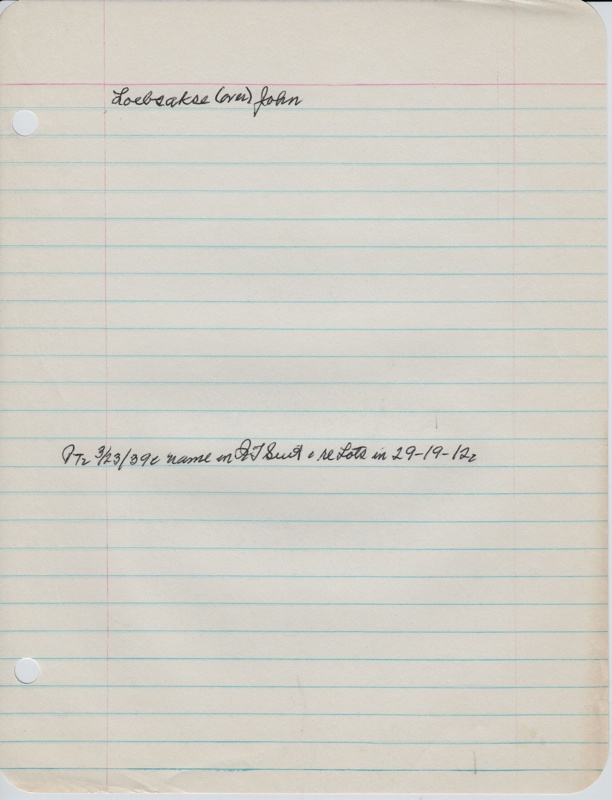 Loebsakse (over) John
3/23/39 name in QT Suit re Lots in 29-19-12